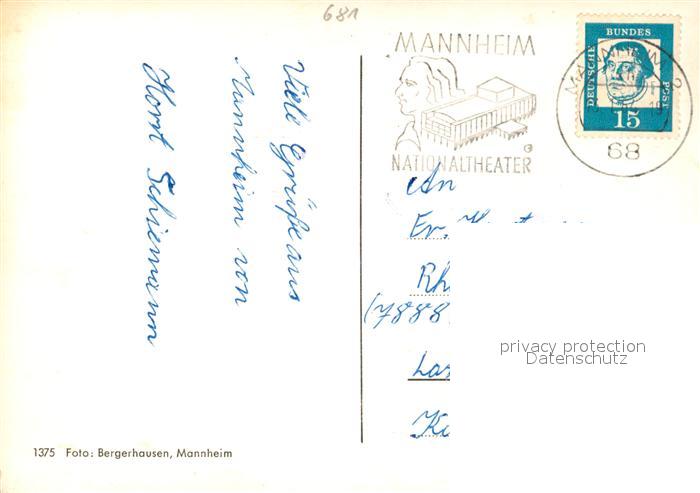 681
MANNHEIM
NATIONALTHEATER
DEUTSCHE
BUNDES
POST
15
MANNHEIM 2
68
Viele Grüße aus
Mannheim von
Horst Schiemann
An
Rh
(7888
privacy protection
Datenschutz
1375 Foto: Bergerhausen, Mannheim